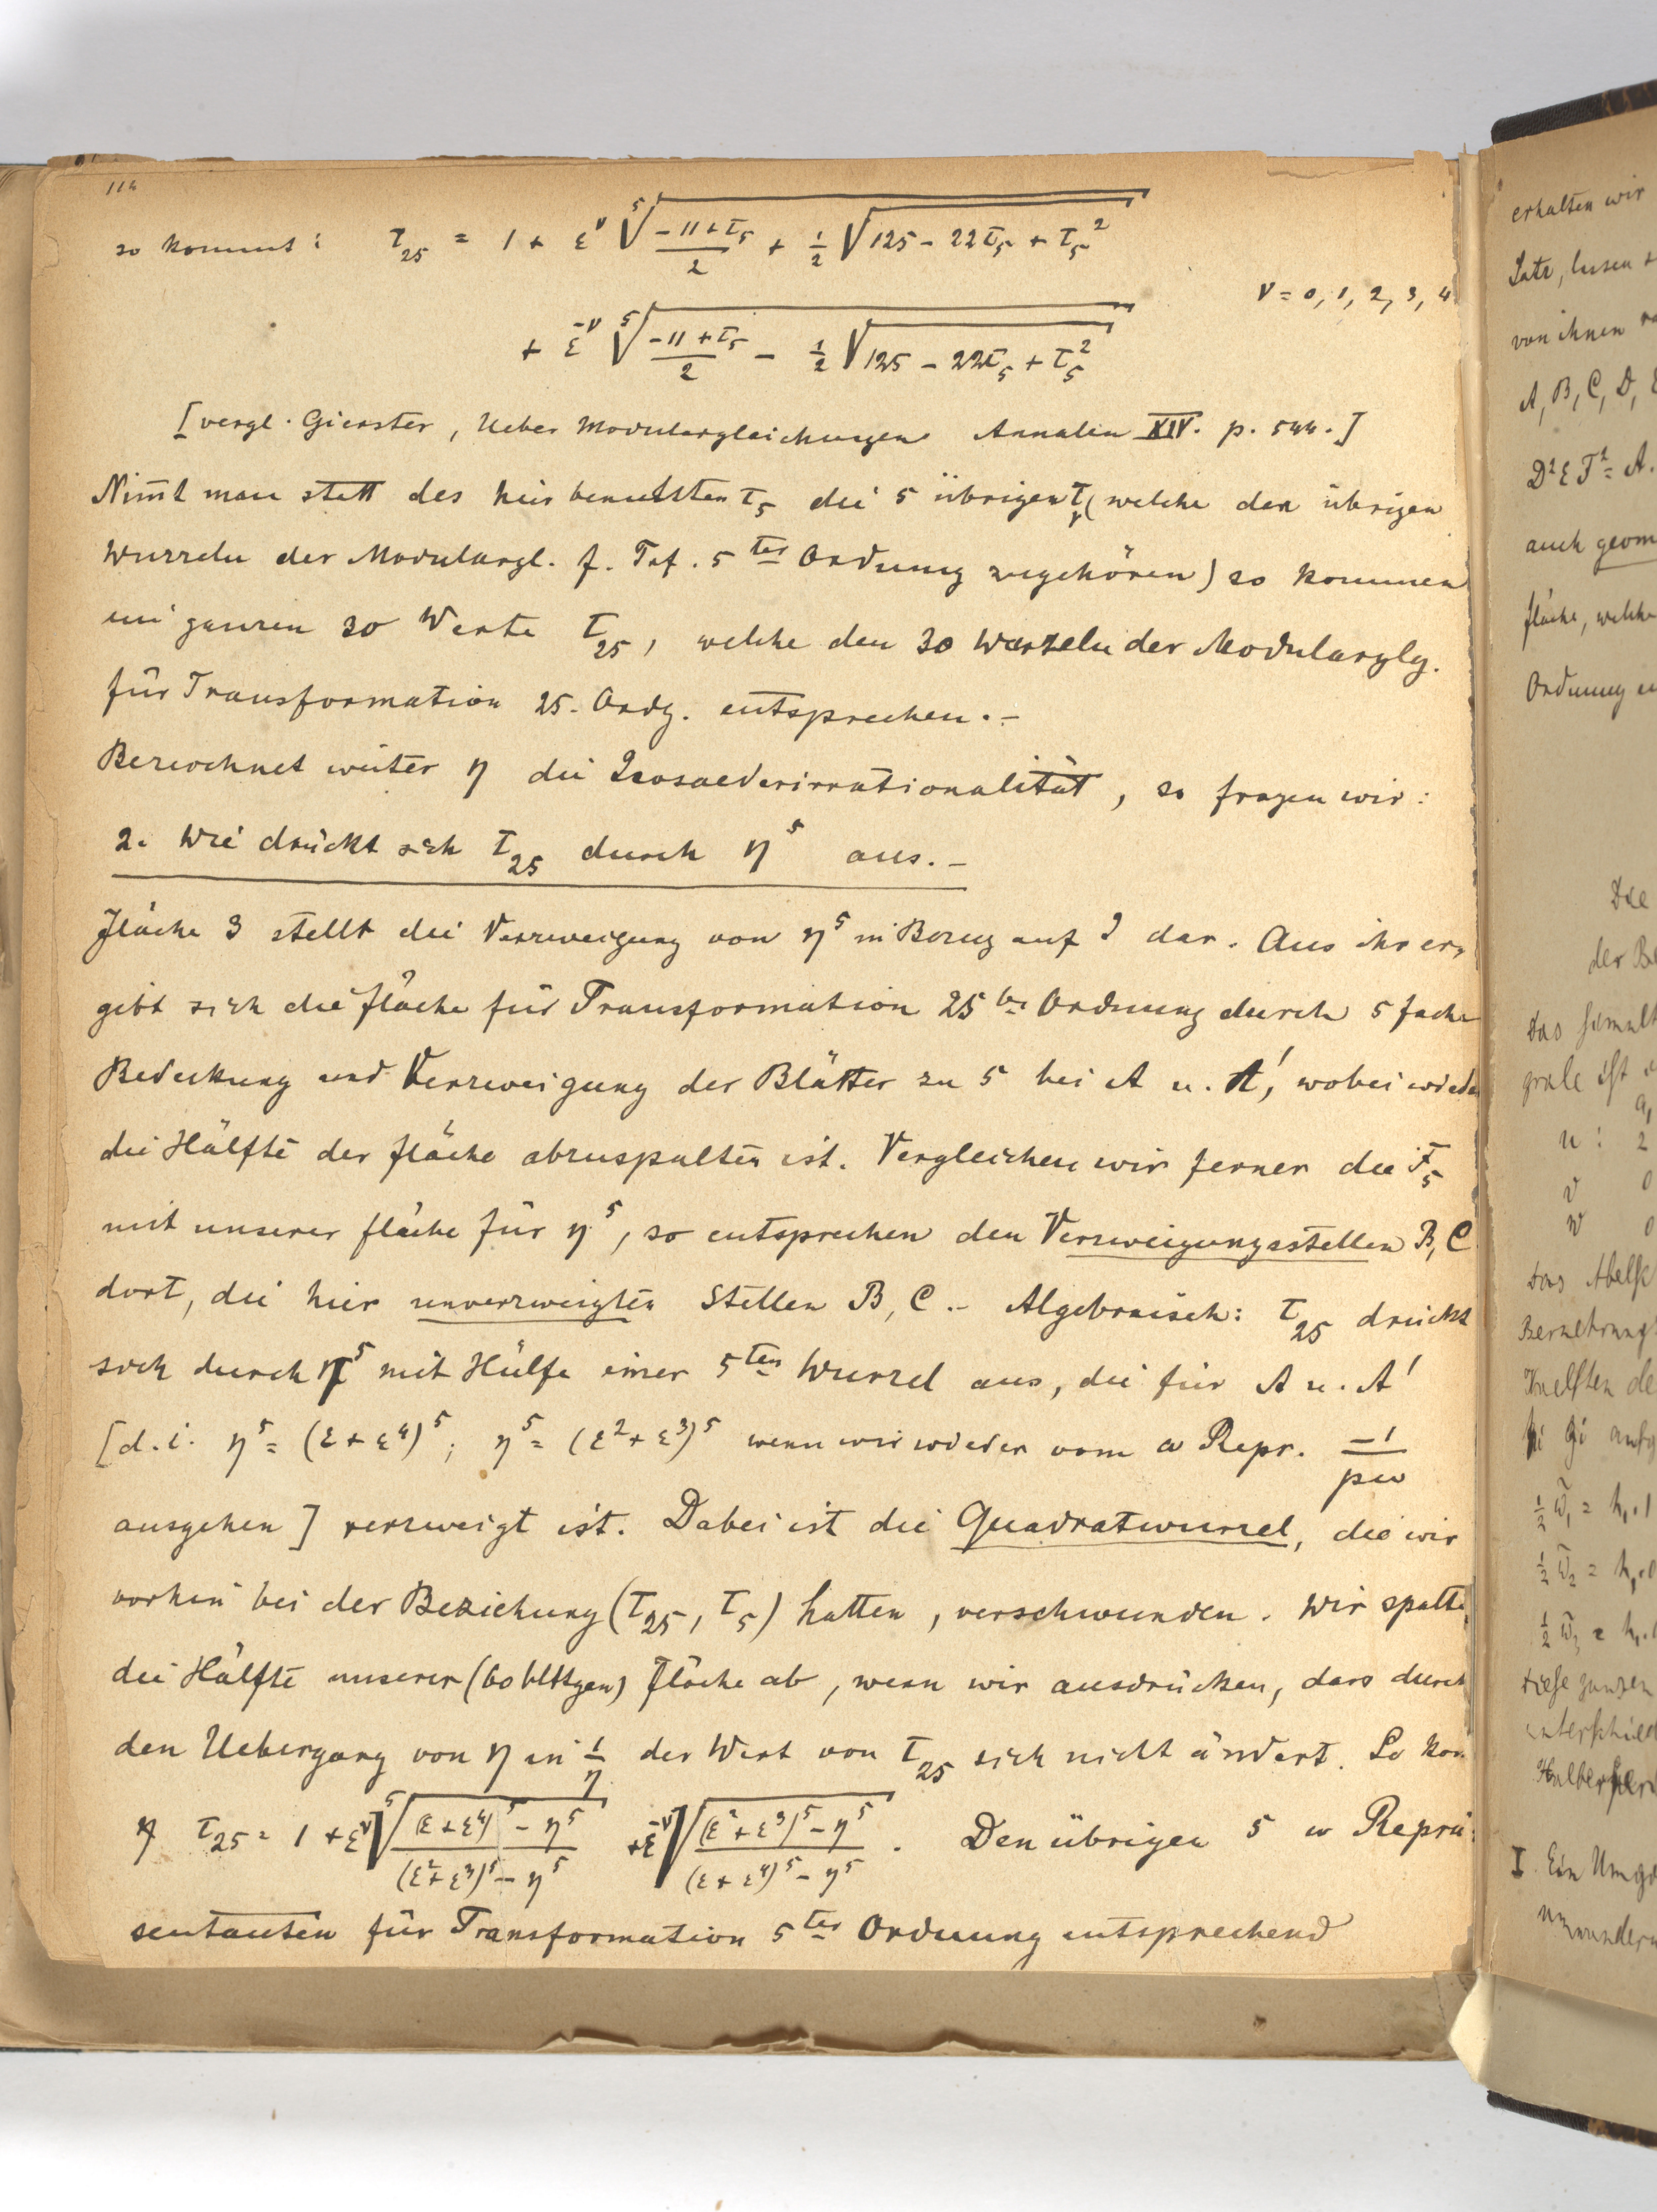 114
so kommt: τ_25 = 1 + ε^ν ⁵√( (-11+τ_5)/2 + 1/2 √(125 - 22τ_5 + τ_5^2) )
ν = 0, 1, 2, 3, 4
+ ε^-ν ⁵√( (-11+τ_5)/2 - 1/2 √(125 - 22τ_5 + τ_5^2) )
[vergl. Gierster, Ueber Modulargleichungen Annalen XIV. p. 544.]
Nim̄t man statt des hier benutzten τ_5 die 5 übrigen τ (welche den übrigen
Wurzeln der Modulargl. f. Trf. 5ter Ordnung zugehören) so kommen
im ganzen 30 Werte τ_25, welche den 30 Wurzeln der Modularglg.
für Transformation 25. Ordg. entsprechen.-
Bezeichnet weiter η die Icosaederirrationalität, so fragen wir:
2. Wie drückt sich τ_25 durch η^5 aus.-
Fläche 3 stellt die Verzweigung von η^5 in Bezug auf J dar. Aus ihr er-
gibt sich die Fläche für Transformation 25ter Ordnung durch 5fache
Bedeckung und Verzweigung der Blätter zu 5 bei A u. A', wobei wieder
die Hälfte der Fläche abzuspalten ist. Vergleichen wir ferner die F_5
mit unserer Fläche für η^5, so entsprechen den Verzweigungsstellen B, C
dort, die hier unverzweigten Stellen B, C.- Algebraisch: τ_25 drückt
sich durch η^5 mit Hülfe einer 5ten Wurzel aus, die für A u. A'
[d.i. η^5 = (ε+ε^4)^5; η^5 = (ε^2+ε^3)^5 wenn wir wieder vom ω Repr. -1/pω
ausgehen] verzweigt ist. Dabei ist die Quadratwurzel, die wir
vorhin bei der Beziehung (τ_25, τ_5) hatten, verschwunden. Wir spalten
die Hälfte unserer (60 blttgen) Fläche ab, wenn wir ausdrücken, dass durch
den Uebergang von η in 1/η der Wert von τ_25 sich nicht ändert. So kom
τ_25 = 1 + ε^ν ⁵√( ((ε+ε^4)^5 - η^5)/((ε^2+ε^3)^5 - η^5) ) + ε^-ν √( ((ε^2+ε^3)^5 - η^5)/((ε+ε^4)^5 - η^5) ). Den übrigen 5 ω Reprä-
sentanten für Transformation 5ter Ordnung entsprechend
erhalten wir
von ihnen
A, B, C, D,
D^2 E F^2 = A.
auch geom
fläche, welche
Ordnung
Die
der Be
Das
u: 2
v 0
w 0
Das Abelsc
diese ganzen
I. Ein Umg